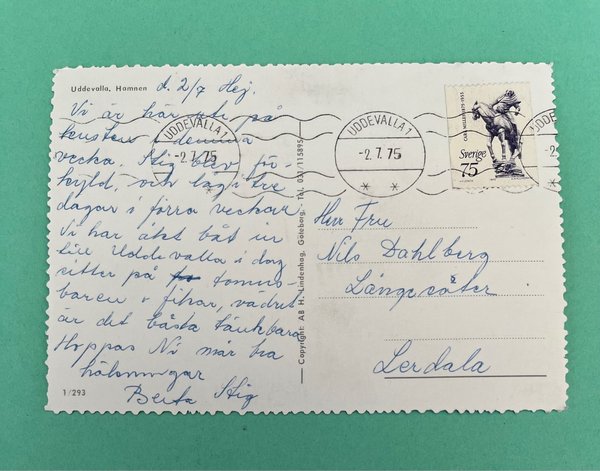 Uddevalla, Hamnen
d. 2/7 Hej.
Vi är här ute på
kusten i denna
vecka. Stig blev för-
kyld, och låg i tre
dagar i förra veckan
Vi har åkt båt in
till Uddevalla i dag
sitter på
baren o fikar, vädret
är det bästa tänkbara
Hoppas Ni mår bra
hälsningar
Berta Stig
1/293
Copyright: AB H. Lindenhag, Göteborg - Tel. 031/115895
UDDEVALLA 1
-2.7.75
UDDEVALLA 1
-2.7.75
CARL MILLES 1875-1955
Sverige
75
Herr Fru
Nils Dahlberg
Långesäter
Lerdala